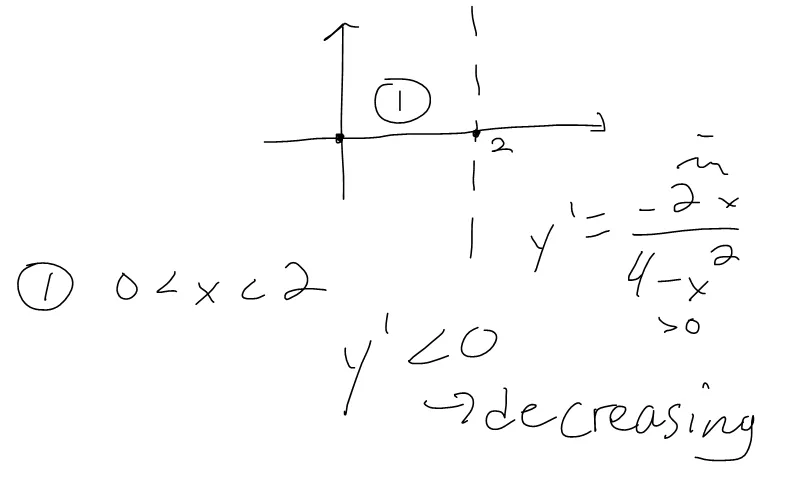 ①
2
y' = -2x / 4 - x²
> 0
① 0 < x < 2
y' < 0
→ decreasing